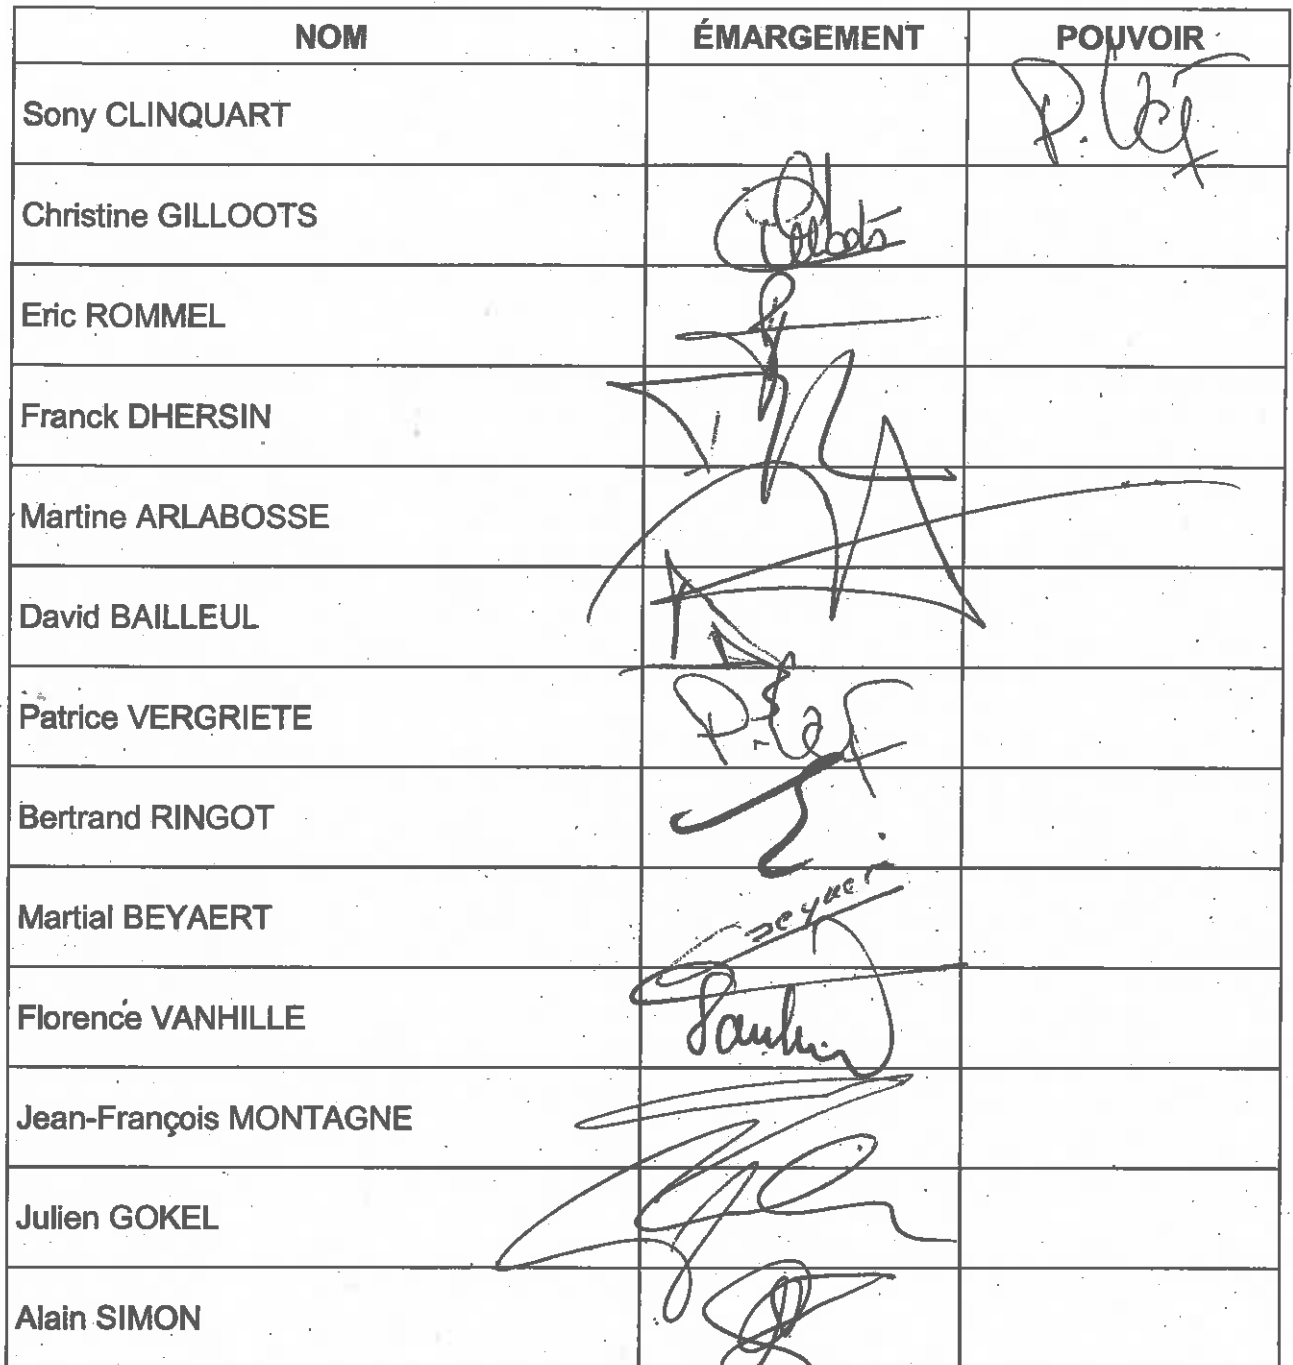 NOM ÉMARGEMENT POUVOIR
Sony CLINQUART
Christine GILLOOTS
Eric ROMMEL
Franck DHERSIN
Martine ARLABOSSE
David BAILLEUL
Patrice VERGRIETE
Bertrand RINGOT
Martial BEYAERT
Florence VANHILLE
Jean-François MONTAGNE
Julien GOKEL
Alain SIMON